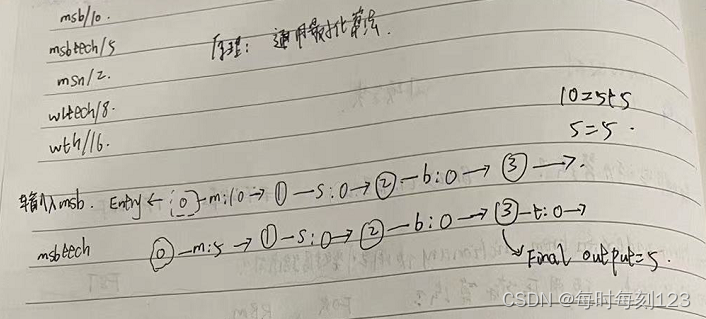 msb/10.
msbtech/5
原理：通用最小化算法.
msn/2.
wltech/8.
wth/16.
10=5+5
5=5.
输入msb. Entry ← 0 -m:10→ ① -s:0→ ② -b:0→ ③ →.
msbtech ⓪ -m:5→ ① -s:0→ ② -b:0→ ③ -t:0→
Final output=5.
CSDN @每时每刻123